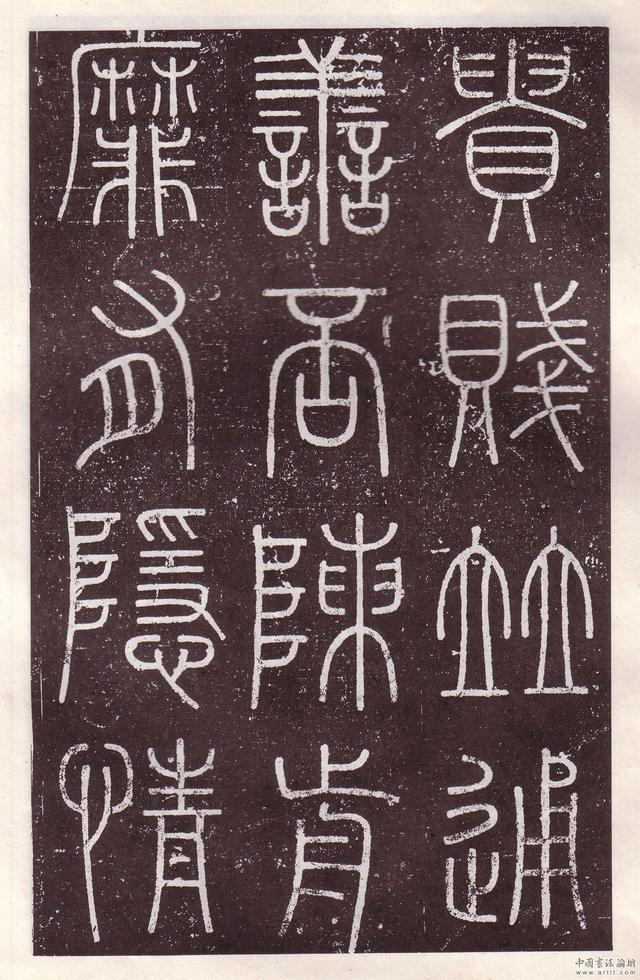 貴賤竝通
譱否陳歬
靡有隱情
中國書法論壇
www.artit.com